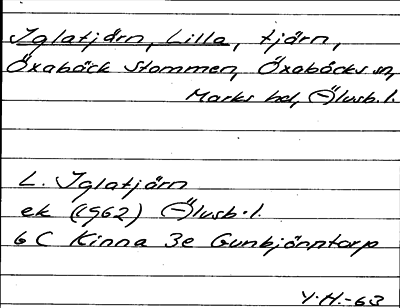 Iglatjärn, Lilla, tjärn,
Öxabäck Stommen, Öxabäcks sn,
Marks hd, Älvsb. l.
L. Iglatjärn
ek (1962) Älvsb. l.
6 C Kinna 3e Gunbjörntorp
Y. H. -63